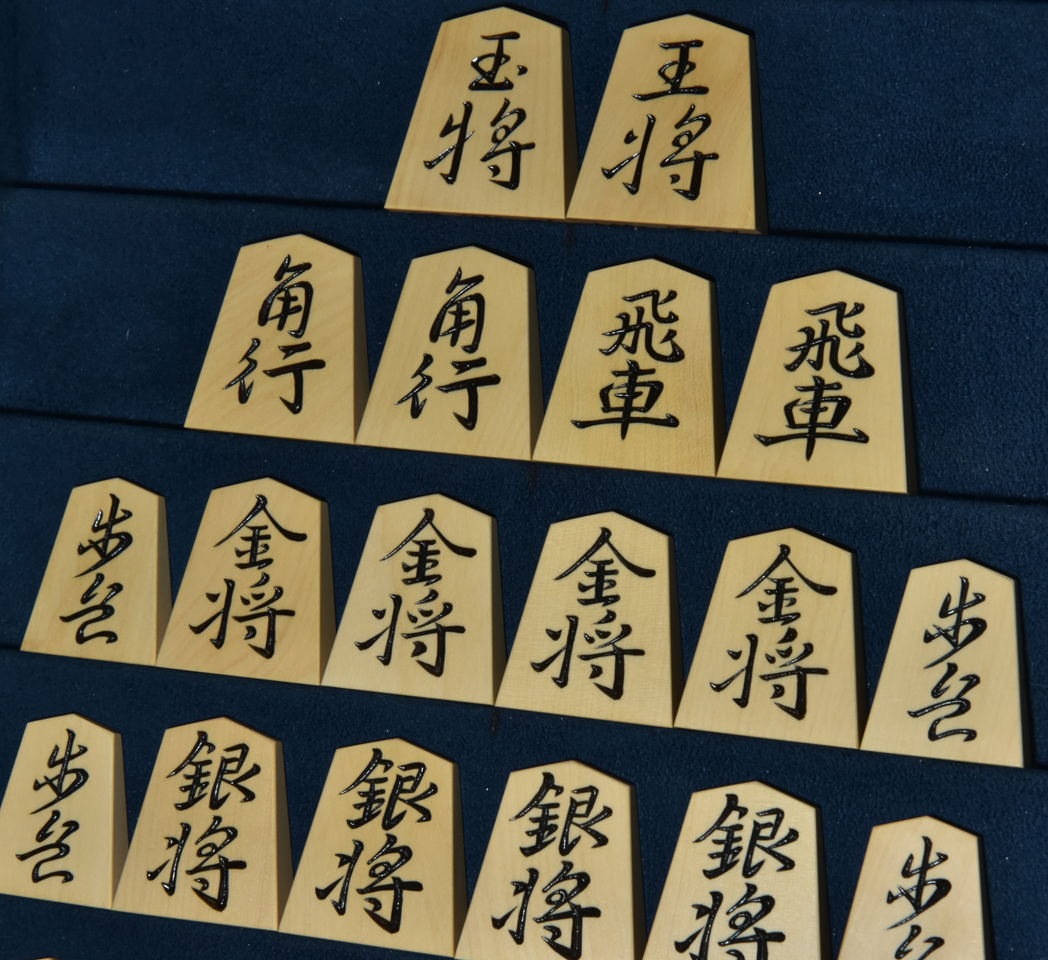 玉将 王将
角行 角行 飛車 飛車
歩兵 金将 金将 金将 金将 歩兵
歩兵 銀将 銀将 銀将 銀将 歩